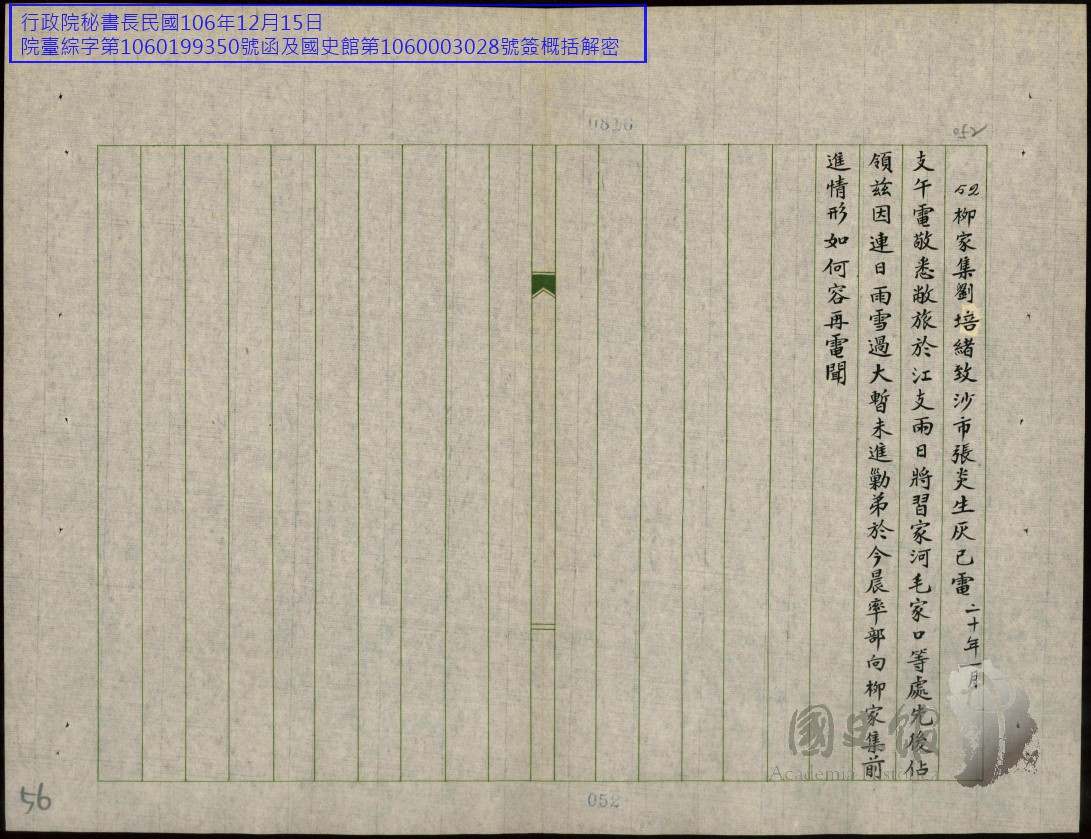 行政院秘書長民國106年12月15日
院臺綜字第1060199350號函及國史館第1060003028號簽概括解密
52柳家集劉培緒致沙市張炎生灰已電二十年一月
支午電敬悉敝旅於江支兩日將習家河毛家口等處先後佔
領茲因連日雨雪過大暫未進勦弟於今晨率部向柳家集前
進情形如何容再電聞
國史館
Academia Historica
052
56